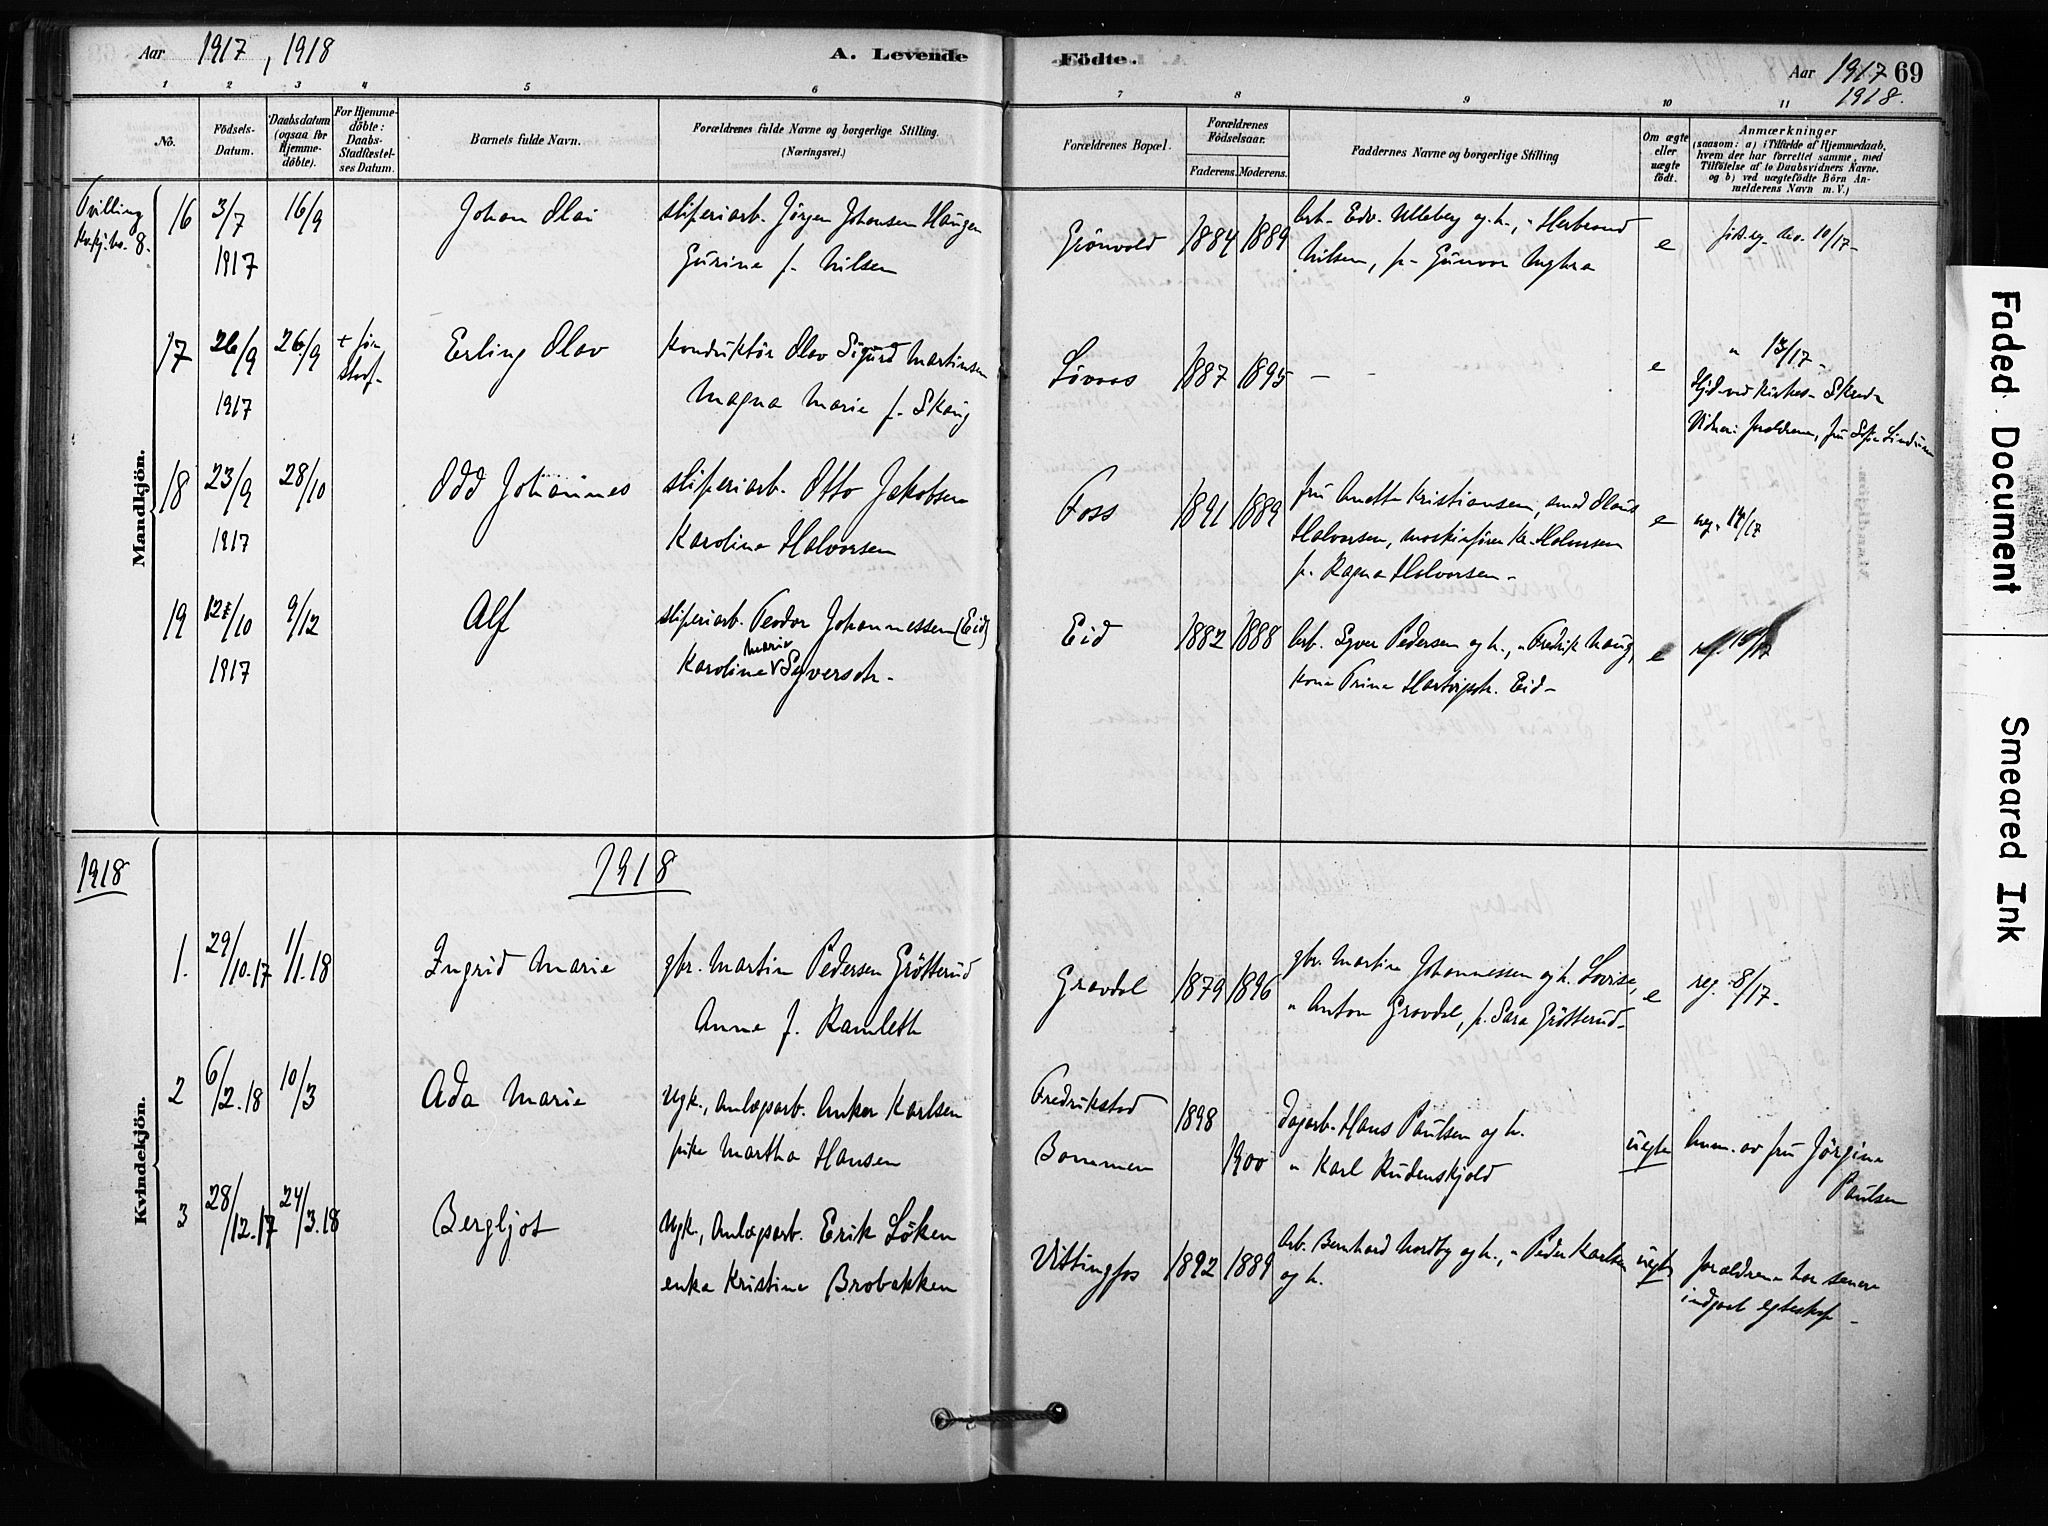 Aar 1917, 1918
A. Levende
Födte.
Aar 1917 69
1918.
1 2 3 4 5 6 7 8 9 10 11
No.
Födsels-
Datum.
Daabsdatum
(ogsaa for
Hjemme-
döbte).
For Hjemme-
döbte:
Daabs-
Stadfæstel-
ses Datum.
Barnets fulde Navn.
Forældrenes fulde Navne og borgerlige Stilling.
(Næringsvei.)
Forældrenes Bopæl.
Forældrenes
Födselsaar.
Faderens. Moderens.
Faddernes Navne og borgerlige Stilling
Om ægte
eller
uægte
födt.
Anmærkninger
(saasom: a) i Tilfælde af Hjemmedaab,
hvem der har forrettet samme, med
Tilföielse af to Daabsvidners Navne.
og b) ved uægtefödte Börn An-
melderens Navn m. V.)
Mandkjön.
Tvilling
kv.kj. no. 8.
16 3/7 16/9 Johan Olai sliperiarb. Jörgen Johansen Haugen Grönvold 1884 1889 Arb. Edv. Ulleberg og h., " Herbrand e 10/17-
1917 Gurine f. Nilsen Nilsen, p. Gunvor
17 26/9 26/9 Erling Olav Konduktör Olav Sigurd Martinsen 1887 1895 - - e " 13/17-
1917 Magna Marie f. Skaug
Forældrene, fru
18 23/9 28/10 Odd Johannes sliperiarb. Otto Jakobsen Foss 1891 1889 fru Anette Kristiansen, e reg. 14/17
1917 Karoline Halvorsen Halvorsen, maskinförer Kr. Halvorsen
p. Ragna Halvorsen-
19 12/10 9/12 Alf sliperiarb. Teodor Johannessen (Eid) Eid 1882 1888 Arb. Syver Pedersen og h., " Fredrik Haug, e
1917 Karoline Marie Syversdtr. kone Trine Hartvigsdtr. Eid-
1918
1918
Kvindekjön.
1. 29/10.17 1/1.18 Ingrid Marie gbr. Martin Pedersen Grötterud Gravdal 1879 1896 gbr. Martin Johannessen og h. Lovise, e reg. 8/17-
Anne f. Ramleth " Anton Gravdal, p. Sara Grötterud-
2 6/2.18 10/3 Ada Marie Ugk., Anlægsarb. Anker Karlsen Fredrikstad 1898 Dagarb. Hans Paulsen og h. uegte Anm. av fru Jörgine
pike Martha Hansen Bommen 1900 " Karl Rudenskjold Paulsen
3 28/12.17 24/3.18 Bergljot Ugk., Anlægsarb. Erik Löken Vittingfos 1892 1889 Arb. Bernhard Nordby og h., " Peder Karlsen uegte forældrene har senere
enke Kristine Brobakken og h. indgaat egteskap-
Faded Document
Smeared Ink